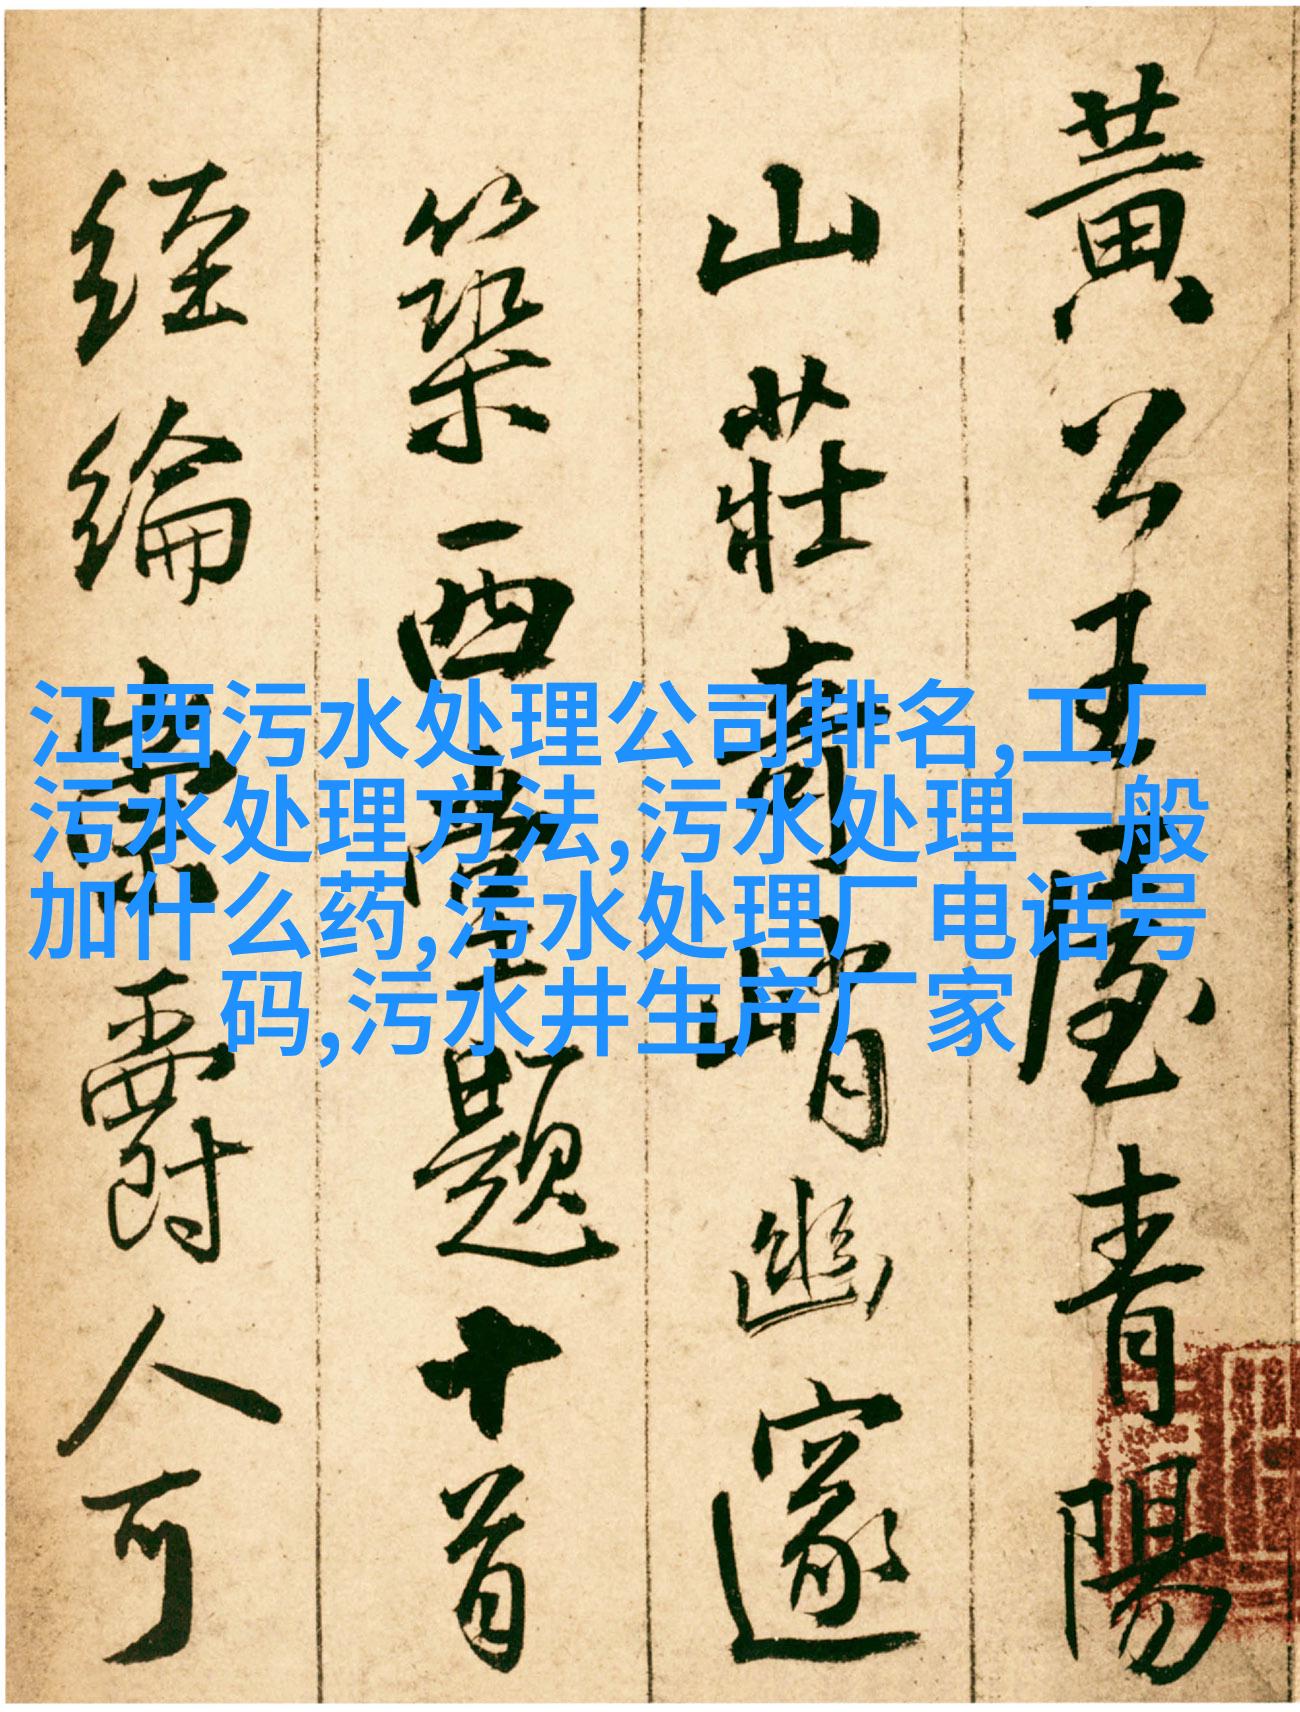 黃公王屋青陽
山莊奇峭幽邃
築西菴題十首
經綸業爵人可
江西污水处理公司排名,工厂
污水处理方法,污水处理一般
加什么药,污水处理厂电话号
码,污水井生产厂家